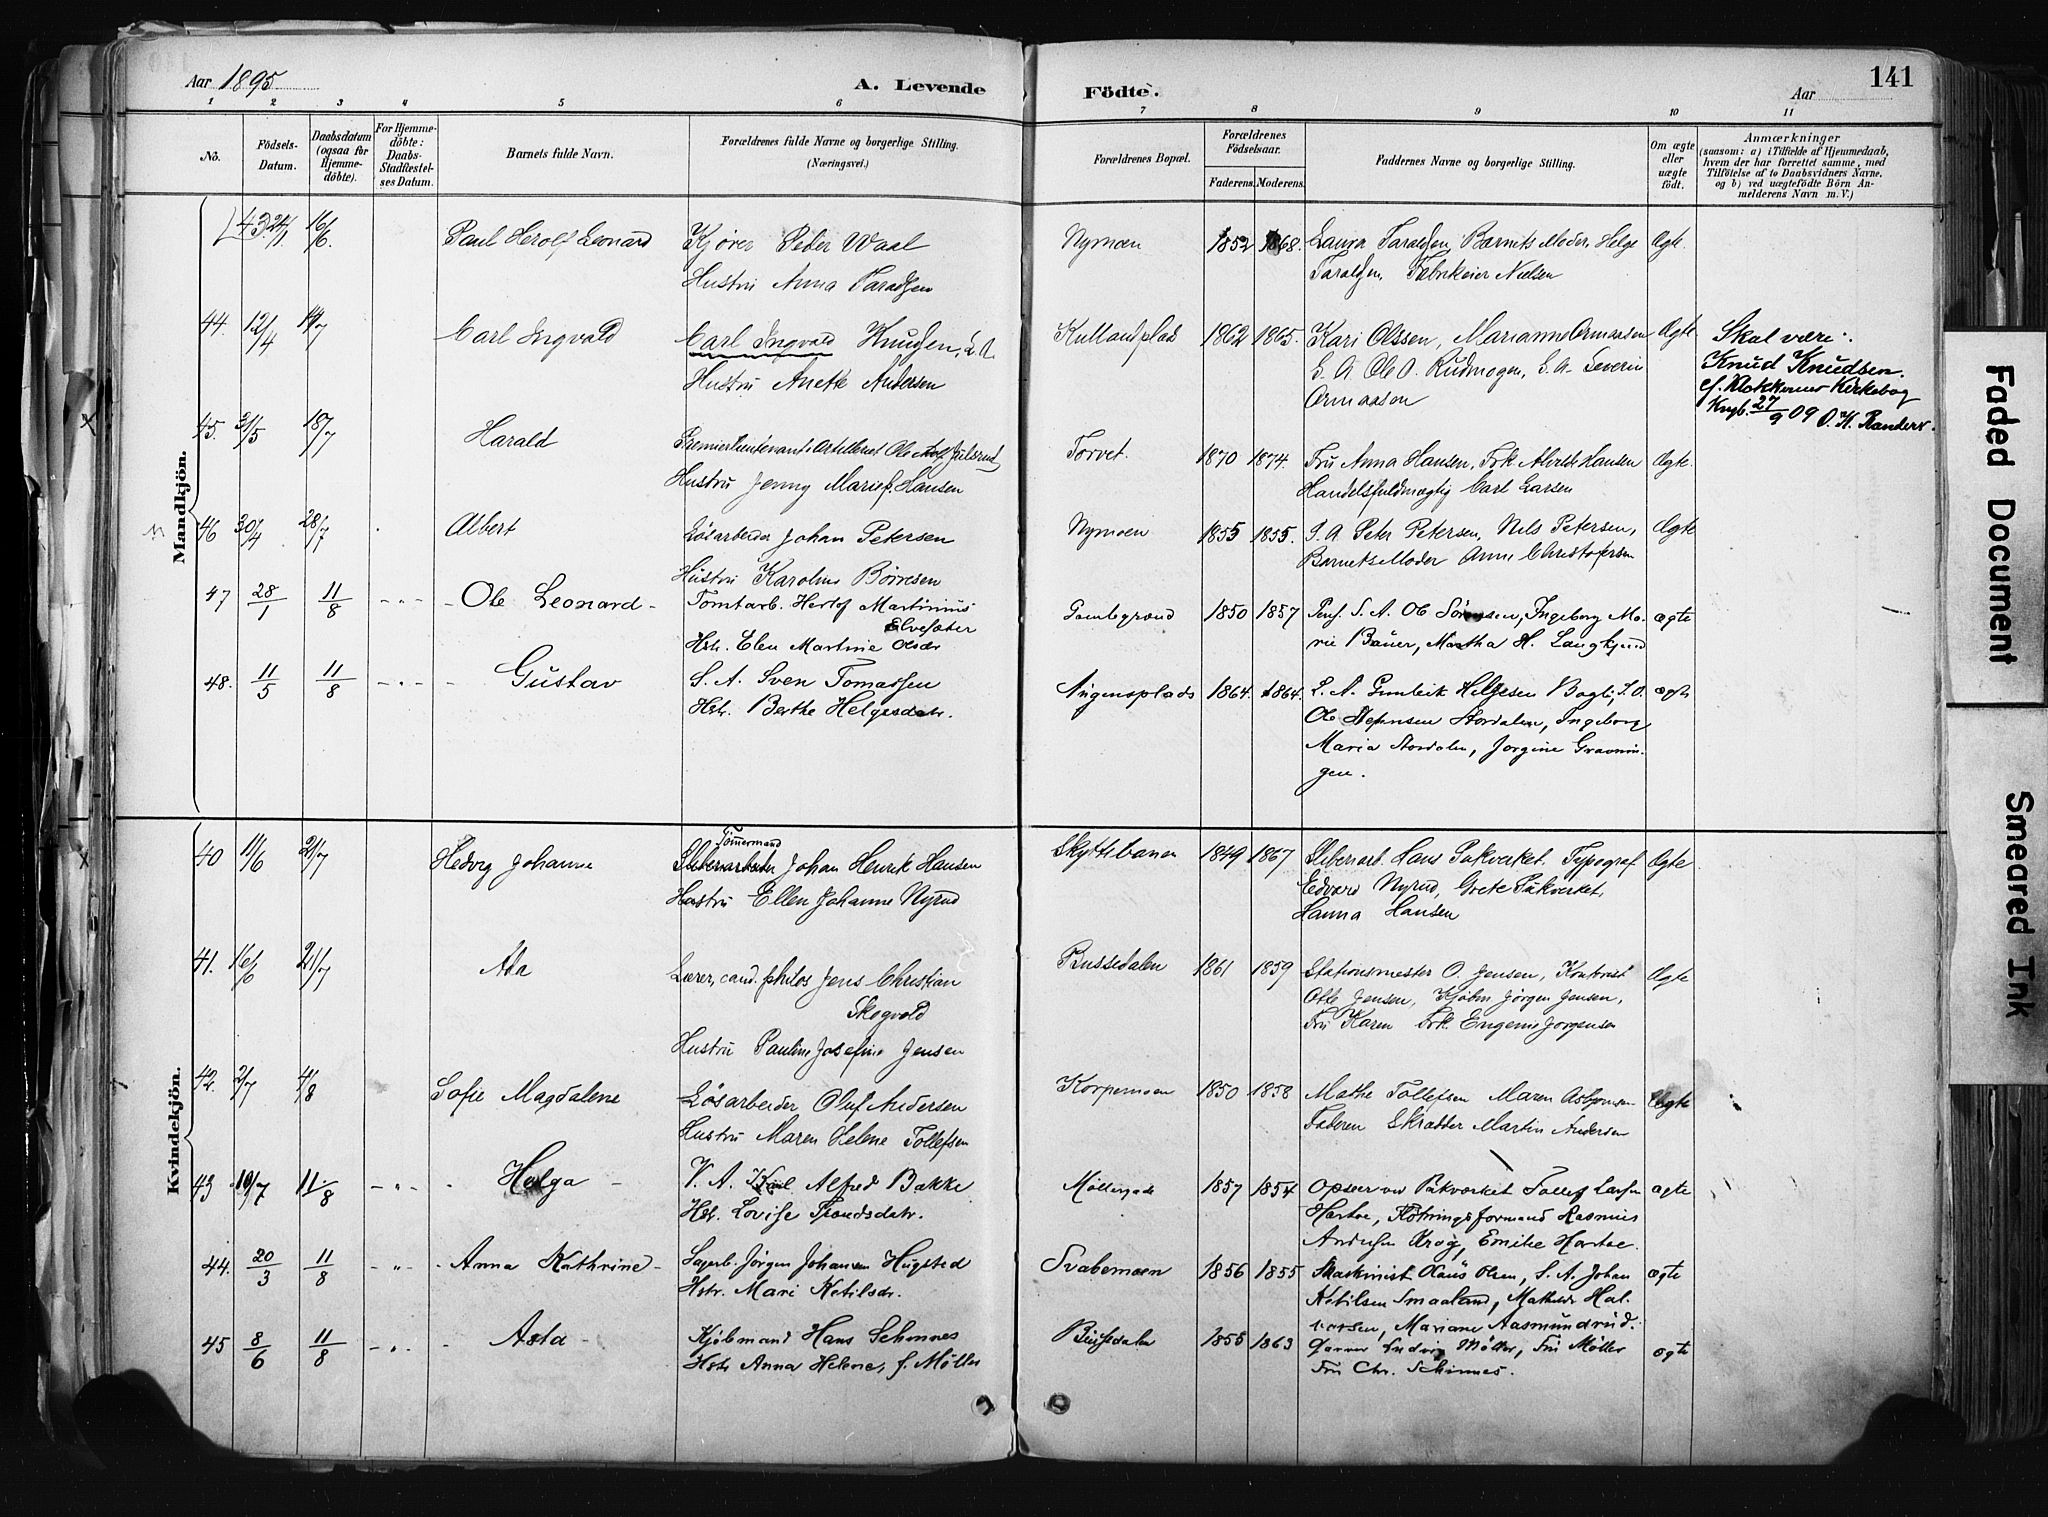 Aar 1895
A. Levende
Födte.
Aar
141
1 2 3 4 5 6 7 8 9 10 11
No.
Födsels-Datum.
Daabsdatum (ogsaa for Hjemmedöbte).
For Hjemmedöbte: Daabs-Stadfæstelses Datum.
Barnets fulde Navn.
Forældrenes fulde Navne og borgerlige Stilling. (Næringsvei.)
Forældrenes Bopæl.
Forældrenes Födselsaar.
Faderens. Moderens.
Faddernes Navne og borgerlige Stilling.
Om ægte eller uægte födt.
Anmærkninger
(saasom: a) i Tilfælde af Hjemmedaab, hvem der har forrettet samme, med Tilföielse af to Daabsvidners Navne, og b) ved uægtefödte Börn Anmelderens Navn m. V.)
Mandkjön.
43. 24/1. 16/6. Paul Herolf Leonard Kjører Peder Waal Nymoen 1852 1868. Laura Taraldsen, Barnets Moder, Helge Ægte.
Hustru Anna Taraldsen Taraldsen, Fabrikeier Nielsen
44. 12/4 14/7 Carl Ingvald Carl Ingvald Knudsen, Kullandplads 1862 1865. Kari Olssen, Marianne Ormaasen Ægte Skal være:
Hustru Anette Andersen S. A. Ole O. Rudmogen, S. A. Severin Knud Knudsen.
Ormaasen cf. Klokkerens Kirkebog
Kngb. 27/9 09 O. H. Randers.
45. 31/5 18/7 Harald Premierlieutenant i Artilleriet Ole Julsrud Torvet. 1870 1874. Fru Anna Hansen, Frk. Alvilde Hansen Ægte.
Hustru Jenny Marie f. Hansen Handelsfuldmægtig Carl Larsen
46 30/4 28/7 Albert Løsarbeider Johan Petersen Nymoen 1855 1855. S. A. Peter Petersen, Nils Petersen, Ægte
Hustru Karoline Børresen Barnets Moder Anne Christofersen
47 28/1 11/8 Ole Leonard Tomtarb. Herlof Martinius Elvesæter Gamlegrænd 1850 1857 Pens. S. A. Ole Sørensen, Ingeborg Ma- ægte
Hstr. Elen Martine Olsdr rie Bauer, Martha H. Langkjend
48. 11/5 11/8 Gustav S. A. Sven Tomassen Aagensplads 1864. 1864. S. A. Gunleik Helgesen Bogli, S. A. ægte
Hstr. Berthe Helgesdatr. Ole Stephnsen Stordalen, Ingeborg
Maria Stordalen, Jorgine Gravnin-
gen.
Kvindekjön.
40 11/6 21/7 Hedvig Johanne Tömmermand Sliberiarbeider Johan Henrik Hansen Skyttebanen 1849 1867 Sliberiarb. Hans Pukverket. Typograf Ægte
Hustru Ellen Johanne Nyrud Edvard Nyrud, Grete Pukverket,
Hanna Hansen
41. 16/6 21/7 Ada Lærer, cand. philos Jens Christian Skogvold Bussedalen 1861 1859 Stationsmester O. Jensen, Kontorist Ægte
Hustru Pauline Josefine Jensen Otto Jensen, Kjøbm Jörgen Jensen,
Fru Karen Frk. Engenie Jorgensen
42. 2/7 4/8 Sofie Magdalene Løsarbeider Oluf Andersen Korpemoen 1850 1858 Mathe Tollefsen Maren Asbjornsen Ægte
Hustru Maren Helene Tollefsen Faderen Skrædder Martin Andersen
43 10/7 11/8 Helga V. A. Karl Alfred Bakke Møllergade 1857 1854 Opseer ved Pukværket Tollef Larsen ægte
Hstr. Lovise Trondsdatr. Hartoe, Flötningsformand Rasmus
Andersen Krog, Emilie Hartoe.
44. 20/3 11/8 Anna Kathrine Sagarb. Jörgen Johansen Hugsted Svabemoen 1856 1855 Maskinist Olaus Olsen, S. A. Johan ægte
Hstr. Mari Ketilsdr. Ketilsen Smaaland, Mathilde Hal-
vorsen, Mariane Aasmundrud.
45 8/6 11/8 Asta Kjöbmand Hans Schinnes Bussedalen 1855 1863 Garver Ludvig Møller, Fru Møller ægte
Hstr Anna Helene, f. Møller Fru Chr. Schinnes.
Faded Document
Smeared Ink